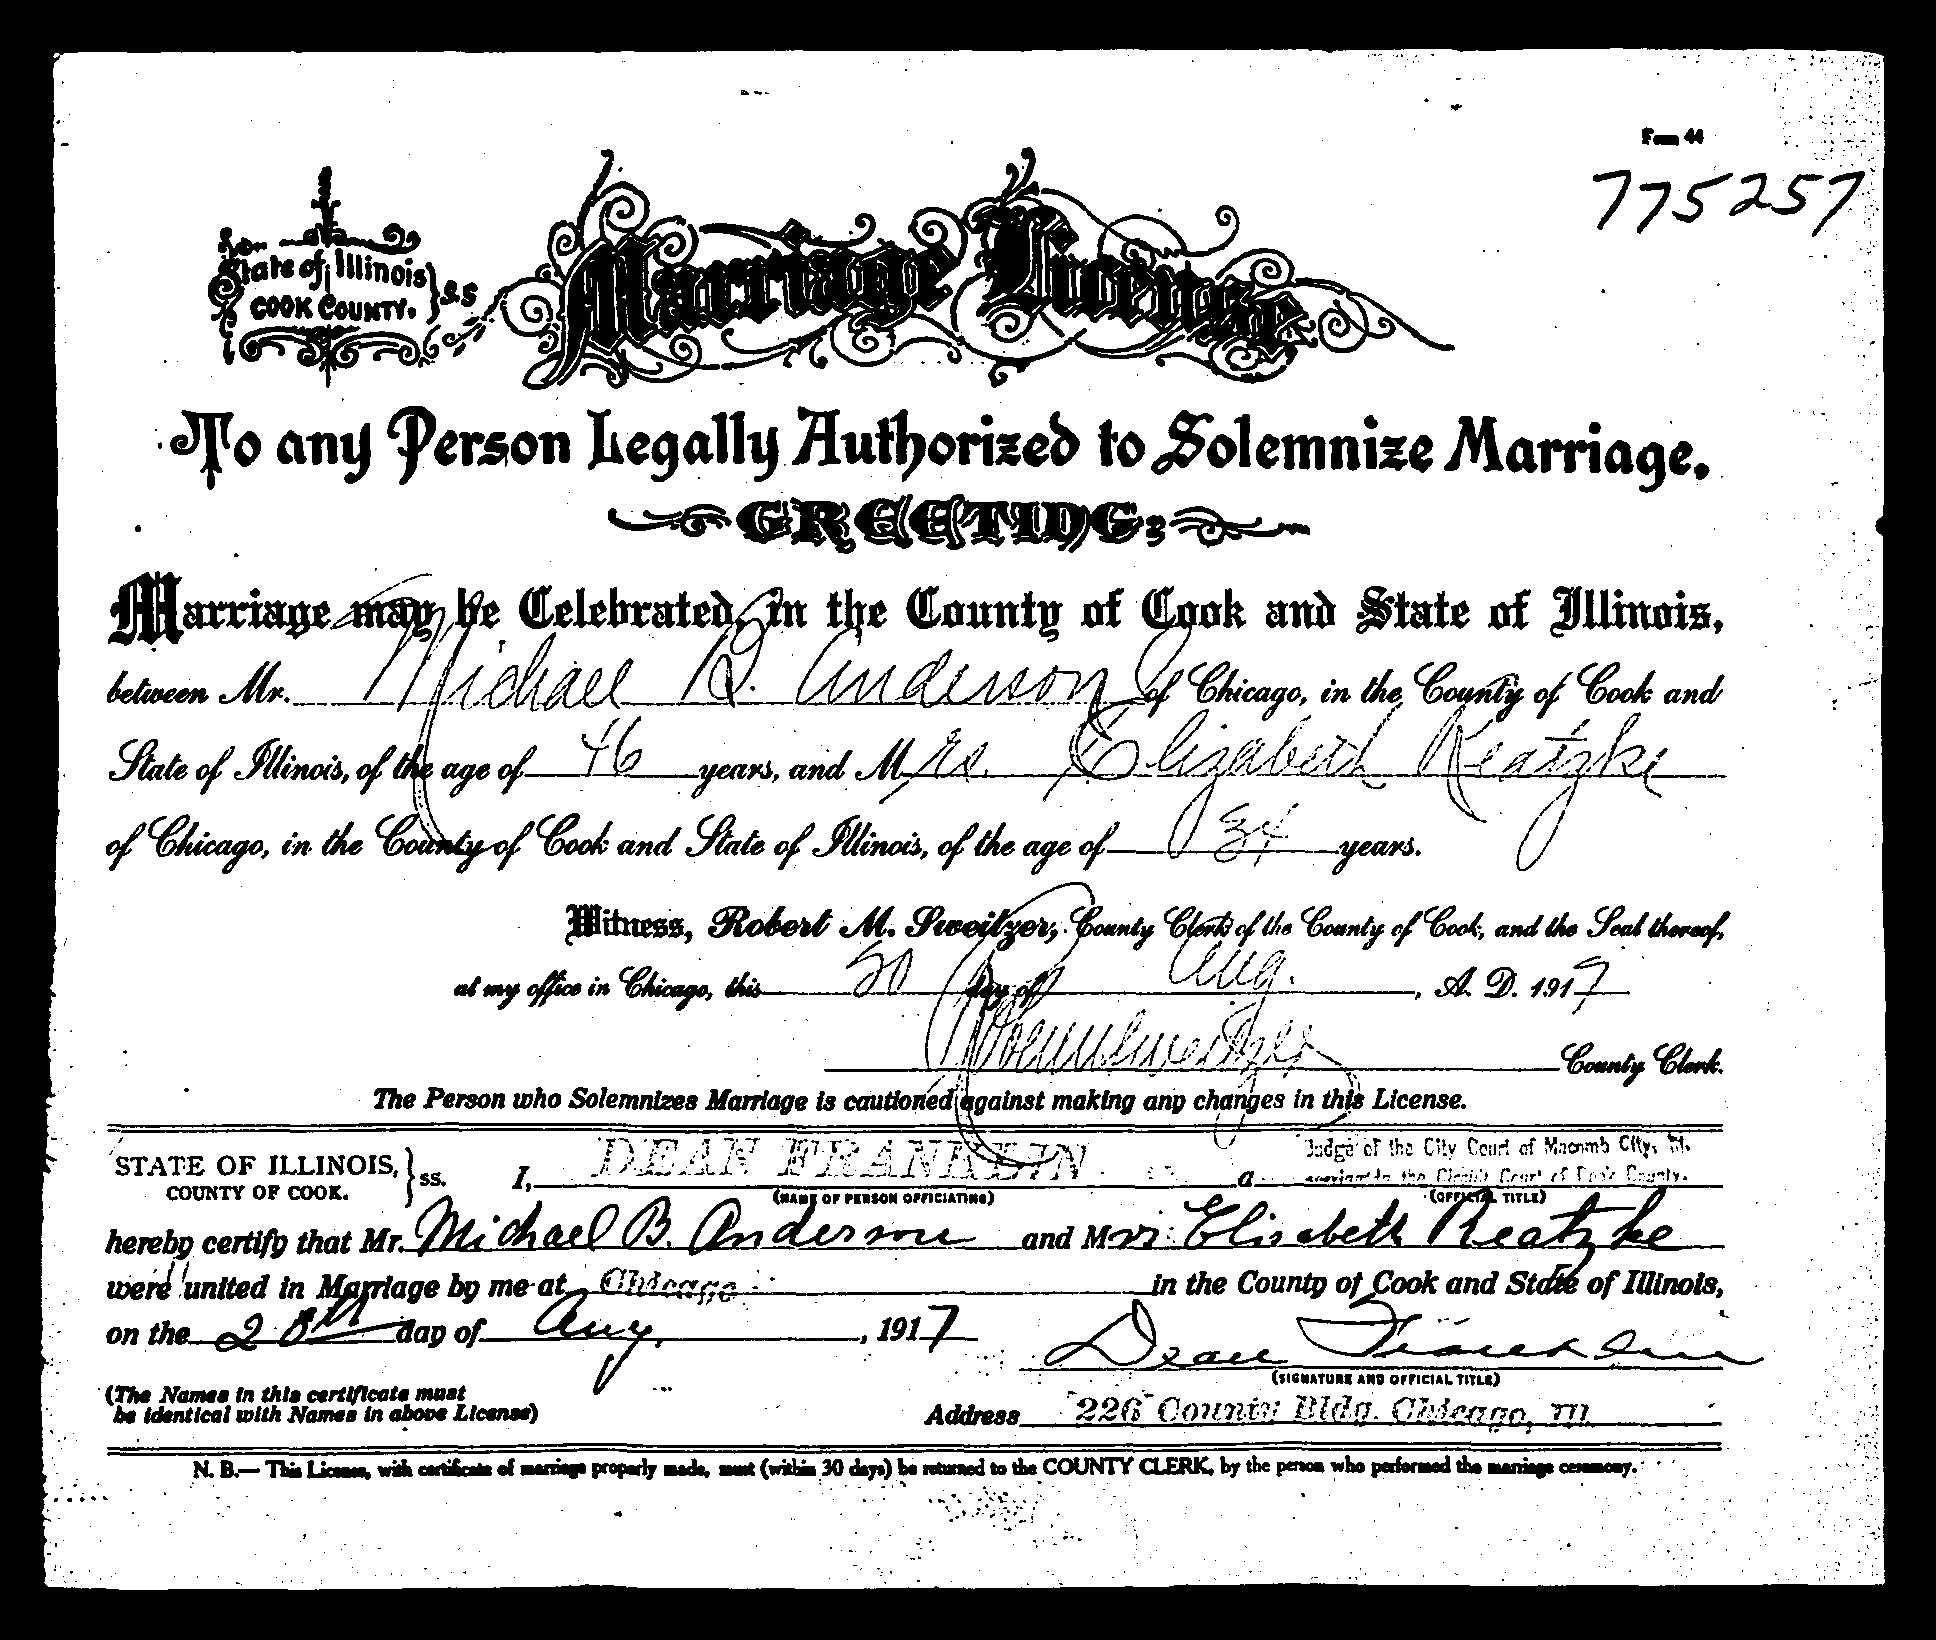 Form 44
775257
State of Illinois
COOK COUNTY. } S.S
Marriage License
To any Person Legally Authorized to Solemnize Marriage.
GREETING:
Marriage may be Celebrated, in the County of Cook and State of Illinois,
between Mr. Michael B. Anderson of Chicago, in the County of Cook and
State of Illinois, of the age of 46 years, and Mrs. Elizabeth Reatzke
of Chicago, in the County of Cook and State of Illinois, of the age of 34 years.
Witness, Robert M. Sweitzer, County Clerk of the County of Cook, and the Seal thereof,
at my office in Chicago, this day of Aug. , A. D. 1917
Robert M Sweitzer County Clerk.
The Person who Solemnizes Marriage is cautioned against making any changes in this License.
STATE OF ILLINOIS, } ss. I, DEAN FRANKLIN a Judge of the City Court of Macomb City, Ill.
COUNTY OF COOK. (NAME OF PERSON OFFICIATING) in the Circuit Court of Cook County.
(OFFICIAL TITLE)
hereby certify that Mr. Michael B. Anderson and Mrs. Elisabeth Reatzke
were united in Marriage by me at Chicago in the County of Cook and State of Illinois,
on the 20th day of Aug. , 1917 Dean Franklin
(SIGNATURE AND OFFICIAL TITLE)
(The Names in this certificate must
be identical with Names in above License) Address 226 County Bldg. Chicago, Ill.
N. B.— This License, with certificate of marriage properly made, must (within 30 days) be returned to the COUNTY CLERK, by the person who performed the marriage ceremony.